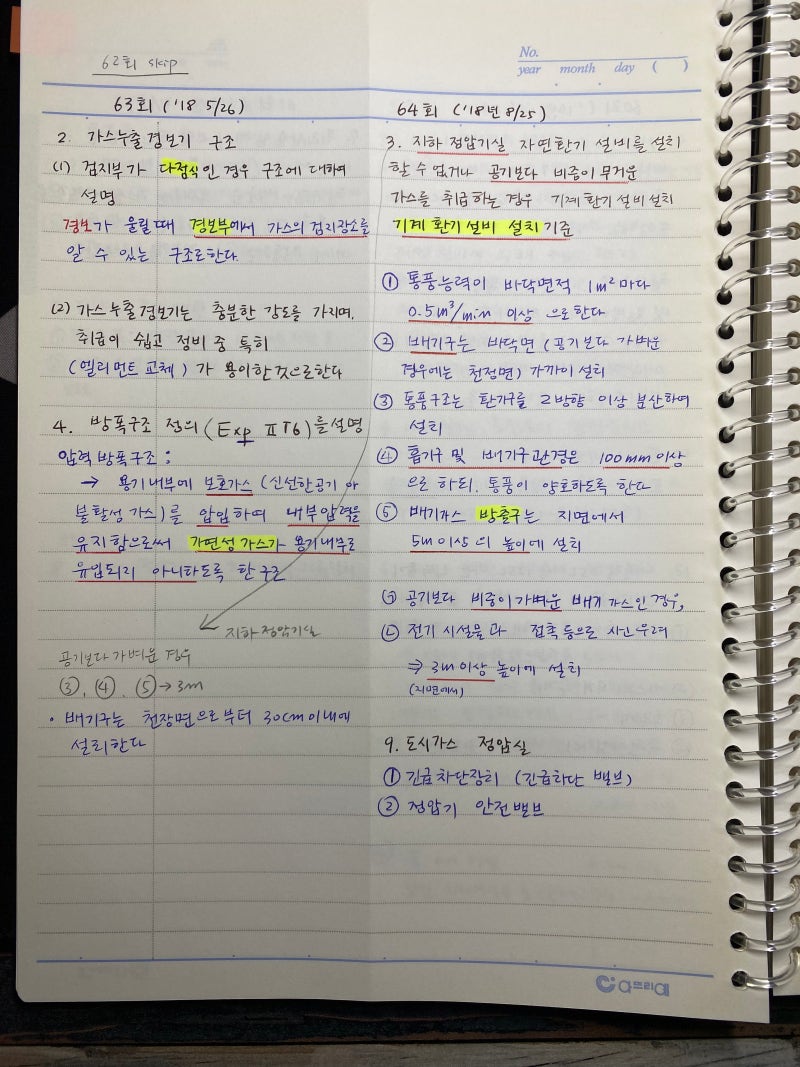 62회 skip
No.
year month day ( )
63회 ('18 5/26)
2. 가스누출경보기 구조
(1) 검지부가 다점식인 경우 구조에 대하여
설명
경보가 울릴때 경보부에서 가스의 검지장소를
알 수 있는 구조로한다.
(2) 가스누출경보기는 충분한 강도를 가지며,
취급이 쉽고 정비 중 특히
(엘리먼트 교체)가 용이한것으로한다
4. 방폭구조 정의 (Exp ⅡT6)를 설명
압력방폭구조 :
→ 용기내부에 보호가스 (신선한공기 or
불활성가스)를 압입하여 내부압력을
유지함으로써 가연성가스가 용기내부로
유입되지 아니하도록 한 구조
지하정압기실
공기보다 가벼운 경우
③, ④, ⑤→3m
• 배기구는 천장면으로부터 30cm이내에
설치한다
64회 ('18년 8/25)
3. 지하 정압기실 자연환기 설비를 설치
할 수 없거나 공기보다 비중이 무거운
가스를 취급하는 경우 기계환기설비설치
기계환기설비 설치기준
① 통풍능력이 바닥면적 1m²마다
0.5m³/min 이상 으로한다
② 배기구는 바닥면(공기보다 가벼운
경우에는 천정면) 가까이 설치
③ 통풍구조는 환기구를 2방향 이상 분산하여
설치
④ 흡기구 및 배기구관경은 100mm이상
으로 하되, 통풍이 양호하도록 한다
⑤ 배기가스 방출구는 지면에서
5m이상의 높이에 설치
㉠ 공기보다 비중이가벼운 배기가스인경우,
㉡ 전기시설물과 접촉등으로 사고우려
⇒ 3m이상 높이에 설치
(지면에서)
9. 도시가스 정압실
① 긴급차단장치 (긴급차단 밸브)
② 정압기 안전밸브
아프리에